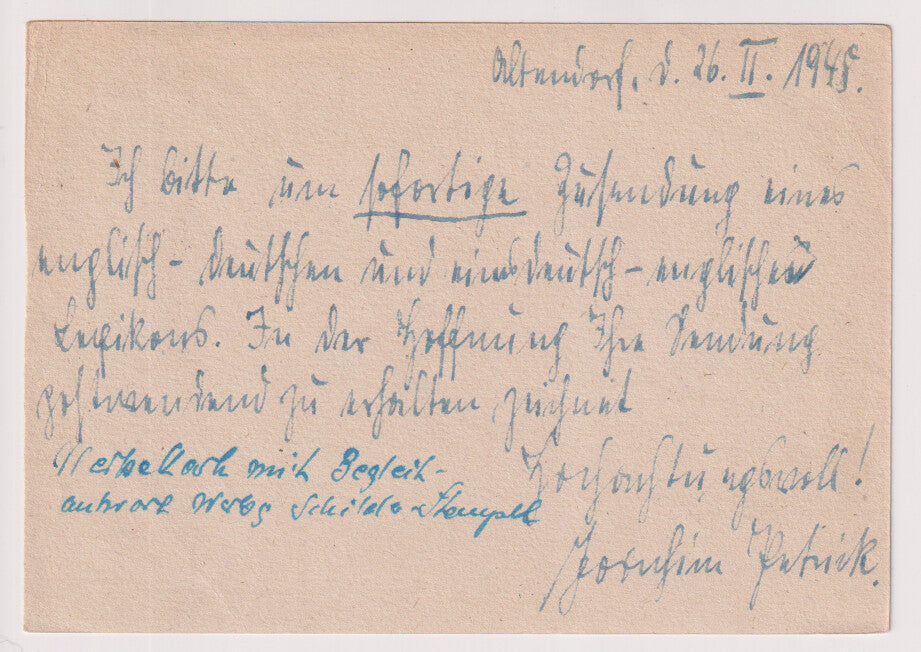 Altendorf, d. 26. II. 1945.
Ich bitte um sofortige Zusendung eines
englisch-deutschen und eines deutsch-englischen
Lexikons. In der Hoffnung Ihre Sendung
postwendend zu erhalten zeichnet
Hochachtungsvoll!
Joachim Petrick.
mit Begleit-
antwort Schilda-Stempel